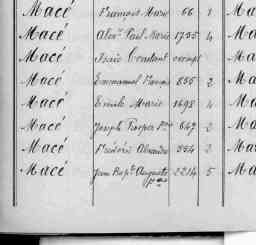 Macé François Marie 66 1 Ma
Macé Alexᵈʳᵉ Paul Marie 1795 4 Ma
Macé Isaïe Constant exempt Ma
Macé Emmanuel François 855 2 Ma
Macé Emile Marie 1698 4 Ma
Macé Joseph Prosper 647 2 Ma
Macé Frédéric Alexandre 334 2 Ma
Macé Jean Bapᵗᵉ Auguste 2214 5 Ma